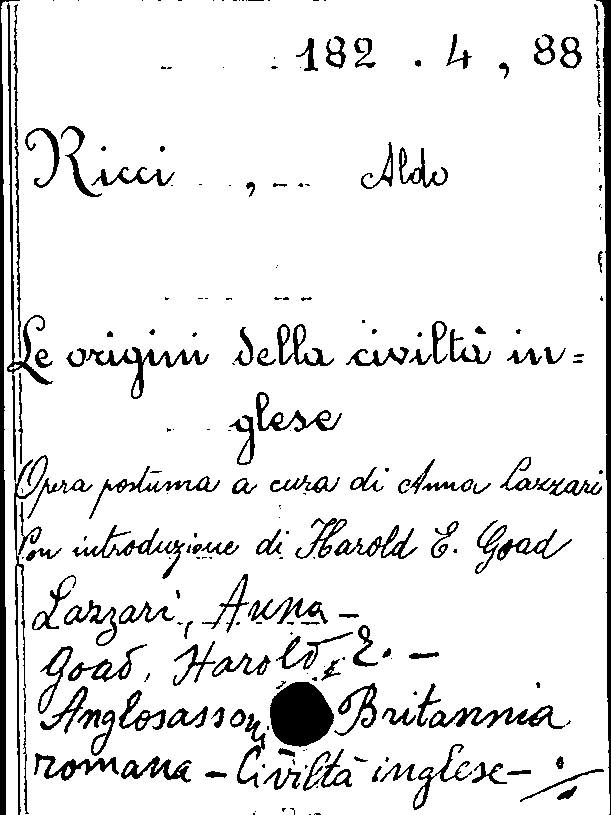 182 . 4 , 88
Ricci , Aldo
Le origini della civiltà in=
glese
Opera postuma a cura di Anna Lazzari
Con introduzione di Harold E. Goad
Lazzari, Anna -
Goad, Harold E. -
Anglosassoni Britannia
romana - Civiltà inglese -